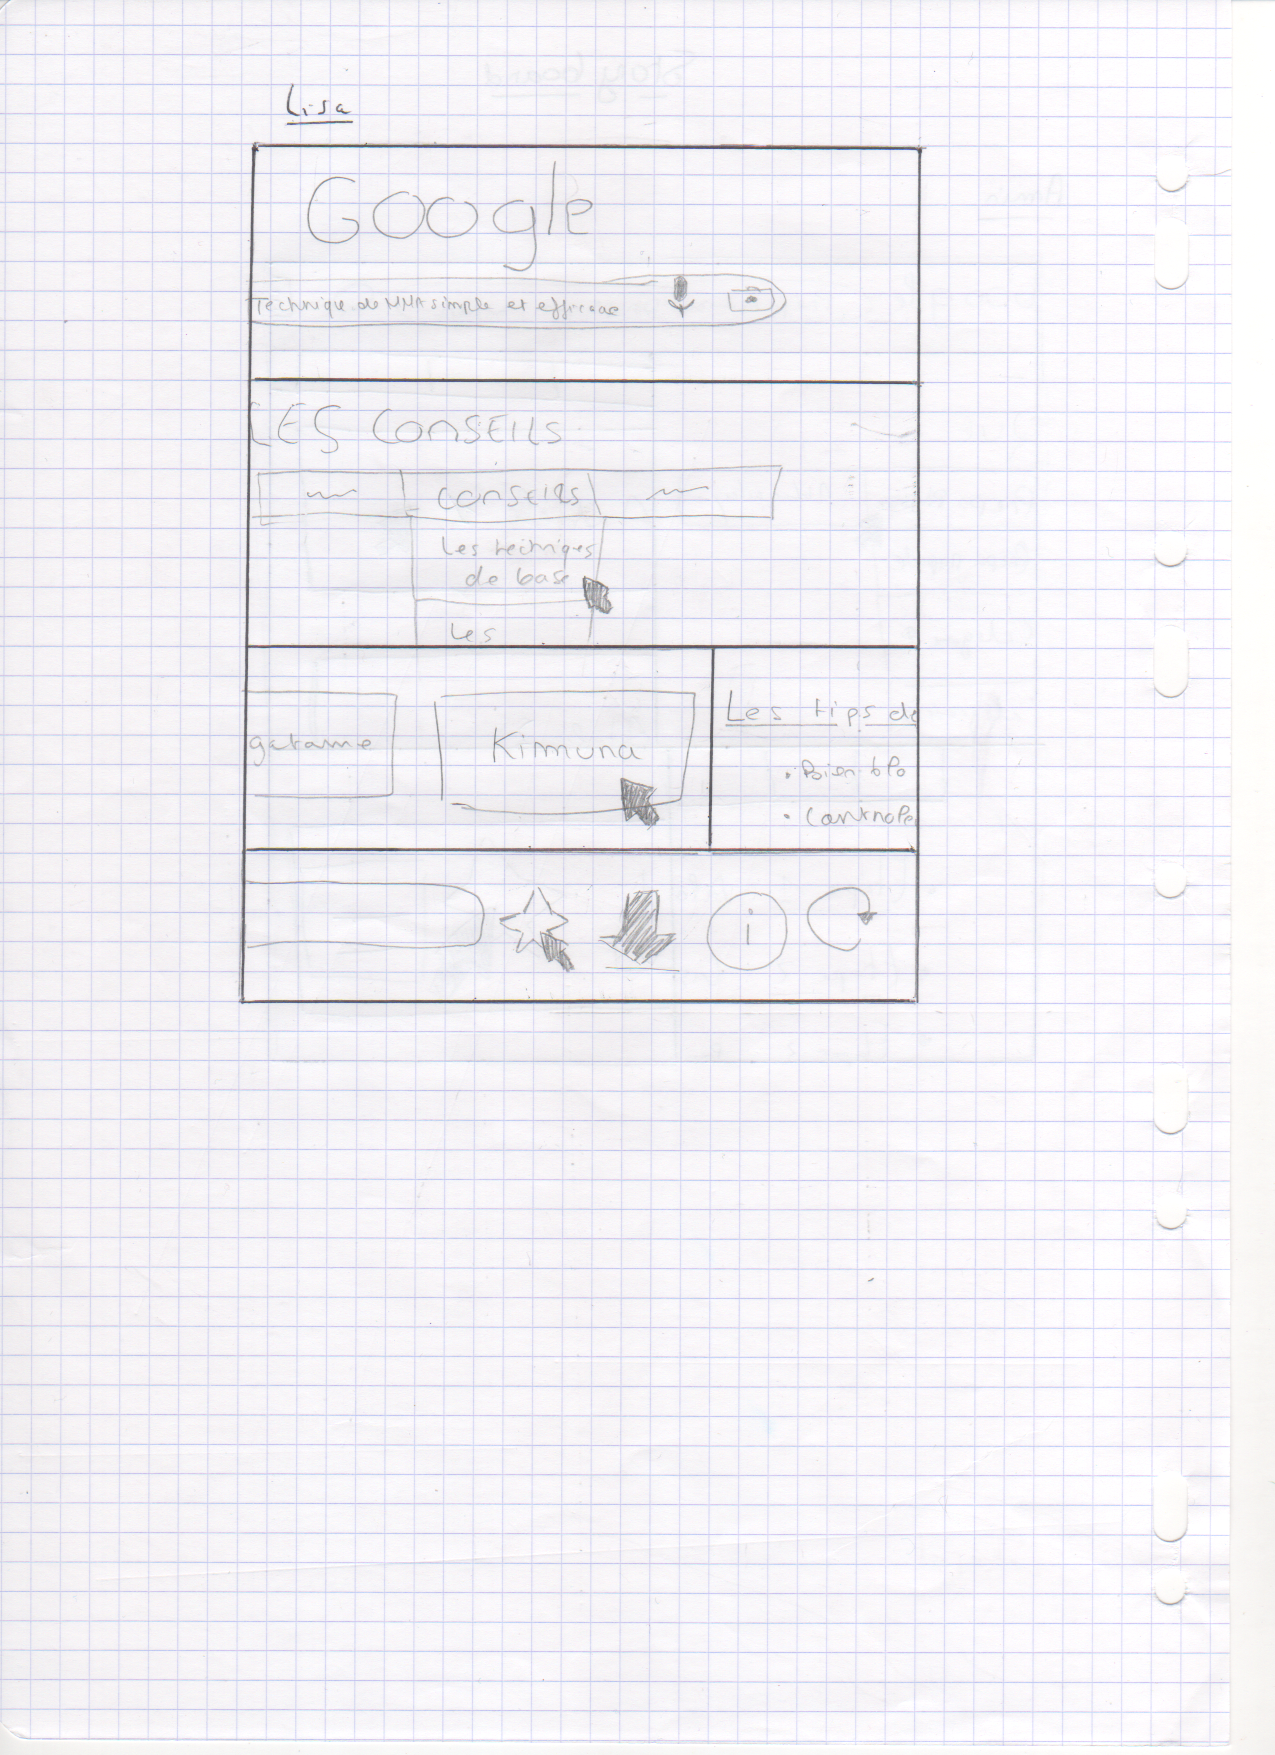 Lisa
Google
Technique de MMA simple et efficace
LES CONSEILS
CONSEILS
Les techniqes
de base
Les
gatame
Kimuna
Les tips de
• Bien blo
• Contrôle
i